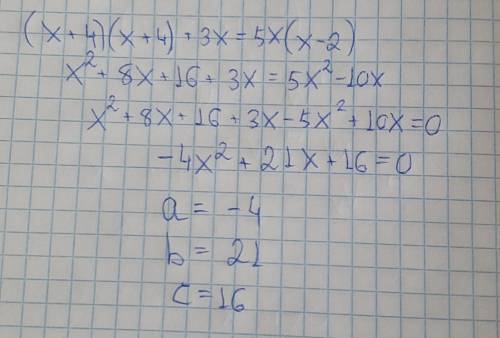 (x+4)(x+4)+3x=5x(x-2)
x²+8x+16+3x=5x²-10x
x²+8x+16+3x-5x²+10x=0
-4x²+21x+16=0
a=-4
b=21
c=16